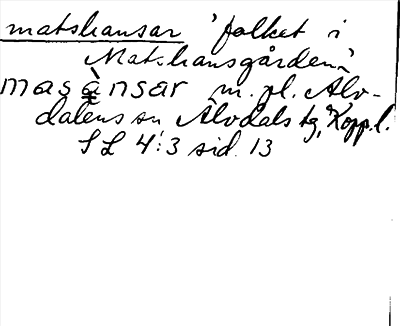 matshansar 'folket i
Matshansgården'
masànsar m. pl. Älv-
dalens sn, Älvdals tg, Kopp.l.
SL 4:3 sid. 13